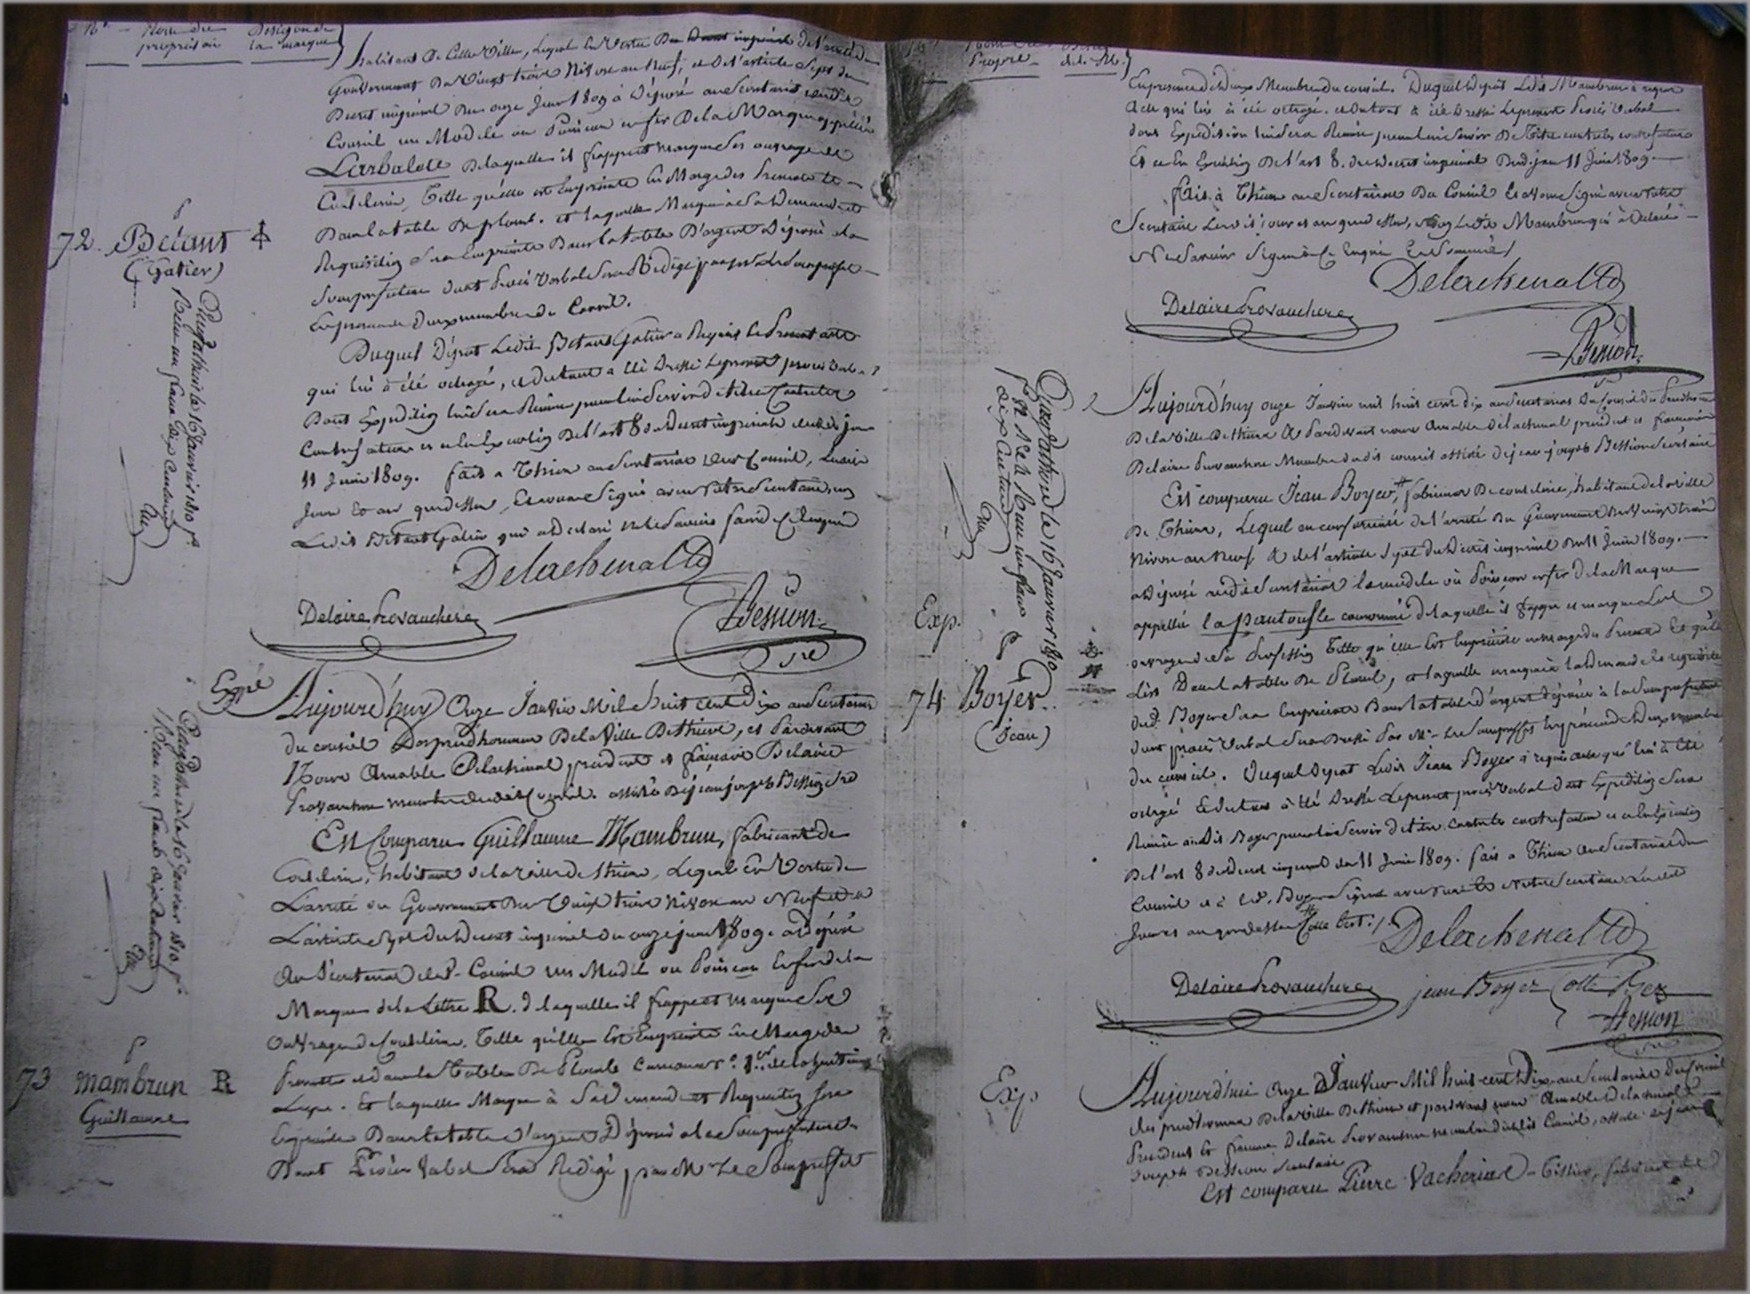 N.° Nom du Désign. de
propriétaire la marque
habitant De Cette Ville, Lequel En Vertu Du impérial de l'arrêté du
Gouvernement Du Vingt trois Nivose an Neuf, et de l'article Sept du
Décret impérial Du onze Juin 1809 à Déposé au Secrétariat
Conseil un Modèle ou Poincon en fer De la Marque appellée
L'arbalete De laquelle il frappe et marque Ses ouvrages de
Coutelerie, Telle qu'elle est Empreinte En Marge des présentes et
Dans la table De plomb. et laquelle Marque à Sa Demande et
Réquisition Sera Empreinte Dans la table D'argent Déposée à la
Souspréfecture Dont Procès Verbal Sera Rédigé par Mr Le Souspréfet
En présence Deux membres du Conseil.
72. Betant
(Gatier)
Enregistré à Thiers le 16 Janvier 1810
Reçu un franc dix Centimes
Duquel Dépot Ledit Betant Gatier a Requis le Présent acte
qui lui à été octroyé, et Du tout a été Dressé Le présent procès verbal
Dont Expédition lui Sera Remise pour lui Servir de titre Contre les
Contrefacteurs et ce En Exécution De l'art 8 du Décret impérial dudit jour
11 Juin 1809. fait a Thiers au Secrétariat du Conseil, Lesdits
Jour Et an que dessus, Et avons Signé avec notre Secrétaire, non
Ledit Betant Gatier qui a déclaré ne le Savoir faire de Ce Enquis
Delachenal
Delaire Provanchere
Bession
Sre
Expé
Aujourd'huy Onze Janvier Mil huit Cent Dix au Secrétariat
du conseil Des prudhommes De la Ville De Thiers, et Pardevant
Nous Amable Delachenal président et françois Delaire
Provanchere membre dudit Conseil. assisté De jean joseph Bession Sre
Enregistré à Thiers le 16 Janvier 1810
Reçu un franc dix Centimes
Est Comparu Guillaume Mambrun, fabricant de
Coutelerie, habitant de la ville de thiers, Lequel En Vertu de
L'arrêté du Gouvernement Du Vingt trois Nivose an Neuf et de
L'article Sept Du Décret impérial Du onze juin 1809. a Déposé
Au Secrétariat dudit Conseil un Modèle ou Poincon En fer de la
Marque de la Lettre R. de laquelle il frappe et marque Ses
Ouvrages de Coutelerie. Telle qu'elle Est Empreinte En Marge des
73 Mambrun R
Guillaume
Ligne. Et laquelle Marque à Sa Demande et Réquisition Sera
Empreinte Dans la table D'argent Déposée à la Souspréfecture
Dont Procès Verbal Sera Rédigé par Mr Le Souspréfet
Propre de la M.
En présence de Deux Membres du conseil. Duquel Dépot Ledit Mambrun a requis
acte qui lui à été octroyé. et Du tout à été Dressé Le présent Procès Verbal
dont Expédition lui Sera Remise pour lui Servir De Titre contre les contrefacteurs
Et ce En Exécution De l'art 8. du Décret impérial Dud. jour 11 Juin 1809.
fait à Thiers au Secrétariat Du Conseil Et avons Signé avec notre
Secrétaire Lesdits jour et an que dessus, non Ledit Mambrun qui à Déclaré
Ne Savoir Signer de Ce Enquis Et Sommé
Delachenal
Delaire Provanchere
Bession
Aujourd'huy onze Janvier mil huit cent dix au Secrétariat Du Conseil Des Prudhommes
De la Ville De thiers Et Pardevant nous Amable Delachenal président et françois
Delaire Provanchere Membre dudit conseil assisté de jean joseph Bession Secrétaire
Enregistré à Thiers le 16 Janvier 1810
dix Centimes
Est comparu Jean Boyer, fabricant De coutelerie, habitant de la ville
De Thiers, Lequel en conformité de l'arrêté Du Gouvernement Du Vingt trois
Nivose an Neuf & de l'article Sept du Décret impérial Du 11 Juin 1809.
a Déposé audit Secrétariat le modèle ou Poincon en fer De la Marque
appellée la pantoufle couronnée de laquelle il frappe et marque Les
Exp.
ouvrages de Sa Profession Telle qu'elle Est Empreinte en marge du Présent Et qu'elle
74 Boyer
(Jean)
L'est Dans la table De Plomb, et laquelle marque à la demande et réquisition
dud. Boyer Sera Empreinte Dans la table d'argent déposée à la Souspréfecture
dont procès Verbal Sera Dressé Par Mr Le Souspréfet En présence de Deux membres
du conseil. Duquel Dépot Ledit Jean Boyer à requis acte qui lui à été
octroyé Et du tout à été Dressé Le présent procès verbal dont Expédition Sera
Remise audit Boyer pour lui Servir de titre contre les contrefacteurs et ce En Exécution
De l'art 8 du Décret impérial du 11 Juin 1809. fait a Thiers au Secrétariat du
Conseil et à led. Boyer Signé avec nous Et notre Secrétaire Lesdits
Jour et an que dessus
Delachenal
Delaire Provanchere
jean Boyer
Bession
Exp.
Aujourd'hui Onze Janvier Mil huit cent Dix au Secrétariat Du Conseil
des prud'hommes De la Ville De thiers et pardevant nous Amable Delachenal
Président Et françois Delaire Provanchere membre dudit Conseil, assisté de jean
Joseph Bession Secrétaire
Est comparu Pierre Vacherias-Tissier, fabricant de